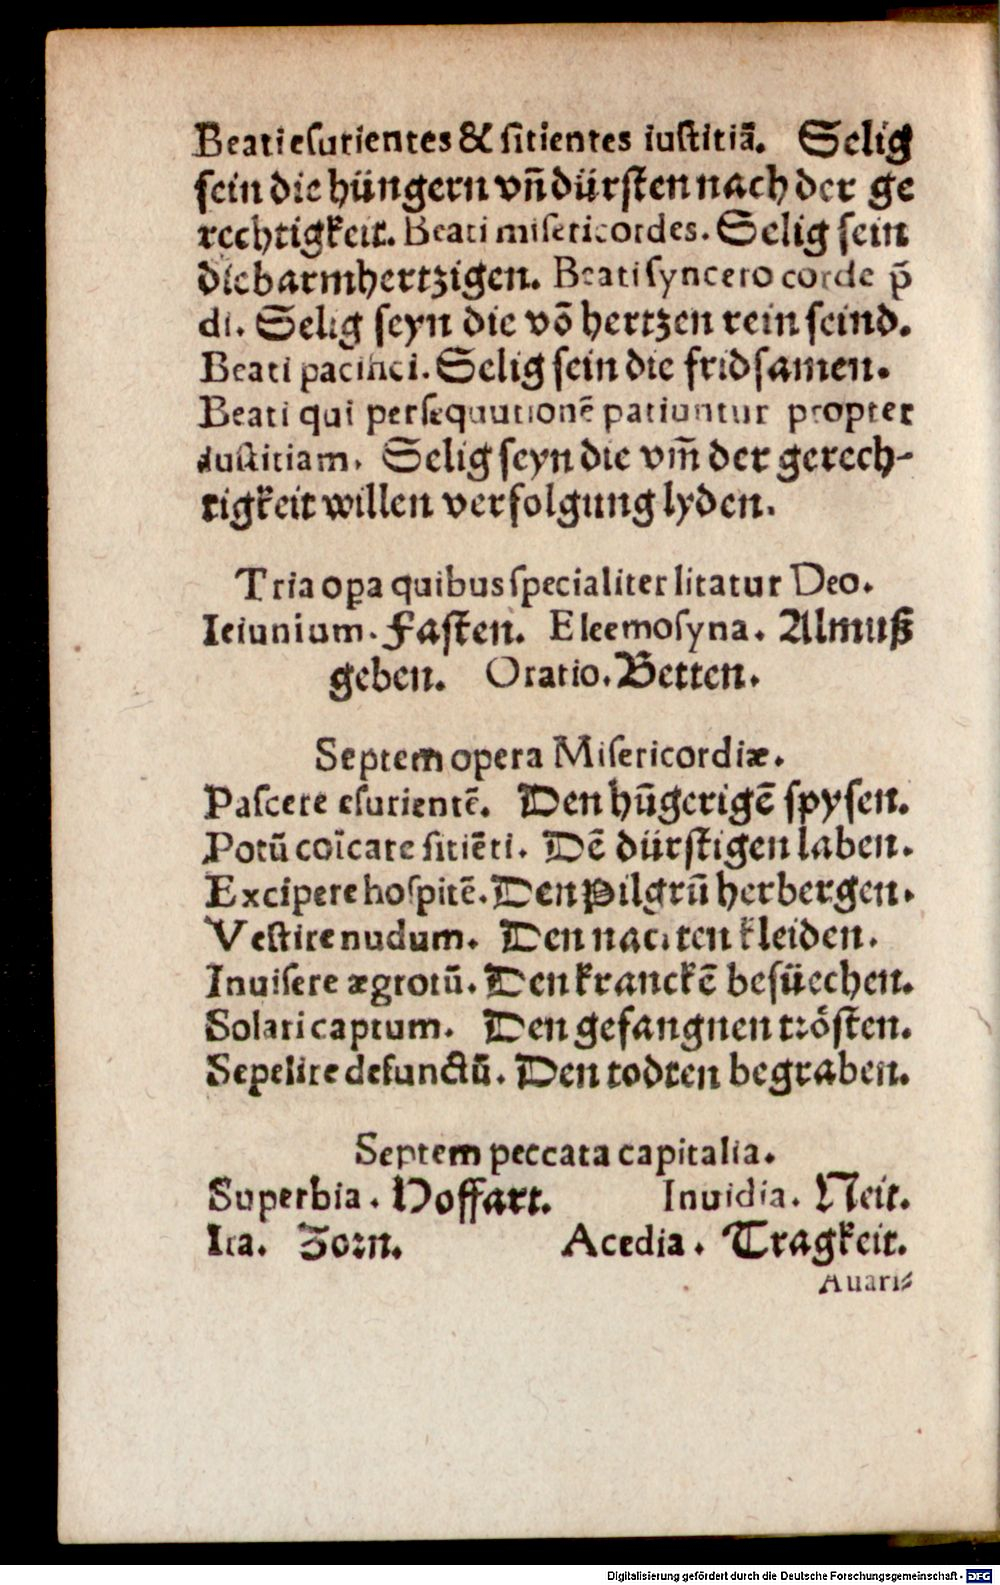 Beati esurientes & sitientes iustitiã. Selig
sein die hüngern vñ dürsten nach der ge
rechtigkeit. Beati misericordes. Selig sein
die barmhertzigen. Beati syncero corde p̃
di. Selig seyn die võ hertzen rein seind.
Beati pacifici. Selig sein die fridsamen.
Beati qui persequutionẽ patiuntur propter
iustitiam. Selig seyn die vm̃ der gerech-
tigkeit willen verfolgung lyden.
Tria oꝑa quibus specialiter litatur Deo.
Ieiunium. Fasten. Eleemosyna. Almuß
geben. Oratio. Betten.
Septem opera Misericordiæ.
Pascere esurientẽ. Den hũgerigẽ spysen.
Potũ coĩcare sitiẽti. Dẽ dürstigen laben.
Excipere hospitẽ. Den Pilgrũ herbergen.
Vestire nudum. Den nacktenn kleiden.
Inuisere ægrotũ. Den kranckẽ besüechen.
Solari captum. Den gefangnen trösten.
Sepelire defunctũ. Den todten begraben.
Septem peccata capitalia.
Superbia. Hoffart. Inuidia. Neit.
Ira. Zorn. Acedia. Tragkeit.
Auari⸗
Digitalisierung gefördert durch die Deutsche Forschungsgemeinschaft - DFG